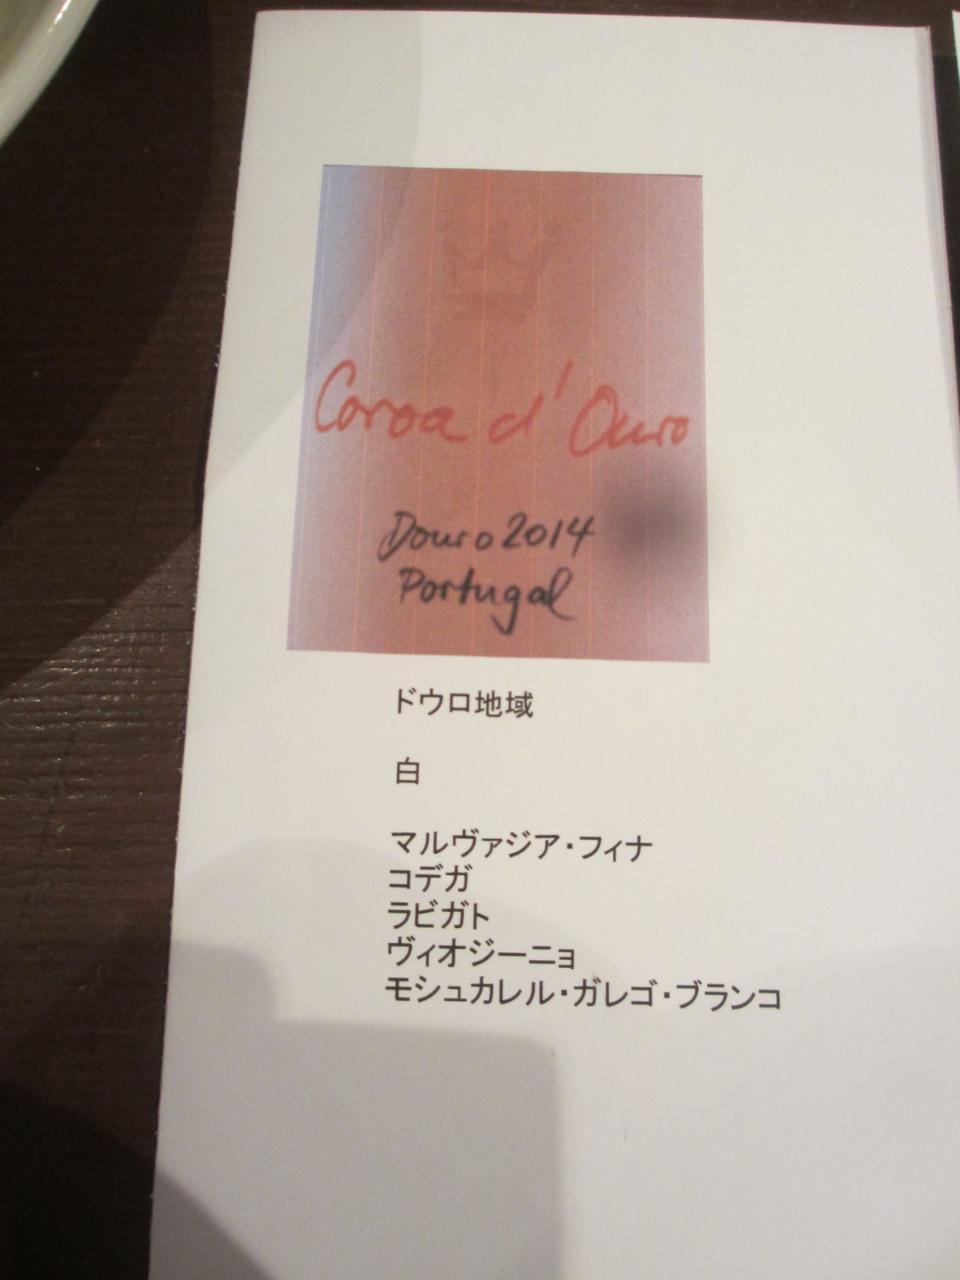 Coroa d'Ouro
Douro 2014
Portugal
ドウロ地域
白
マルヴァジア・フィナ
コデガ
ラビガト
ヴィオジーニョ
モシュカレル・ガレゴ・ブランコ